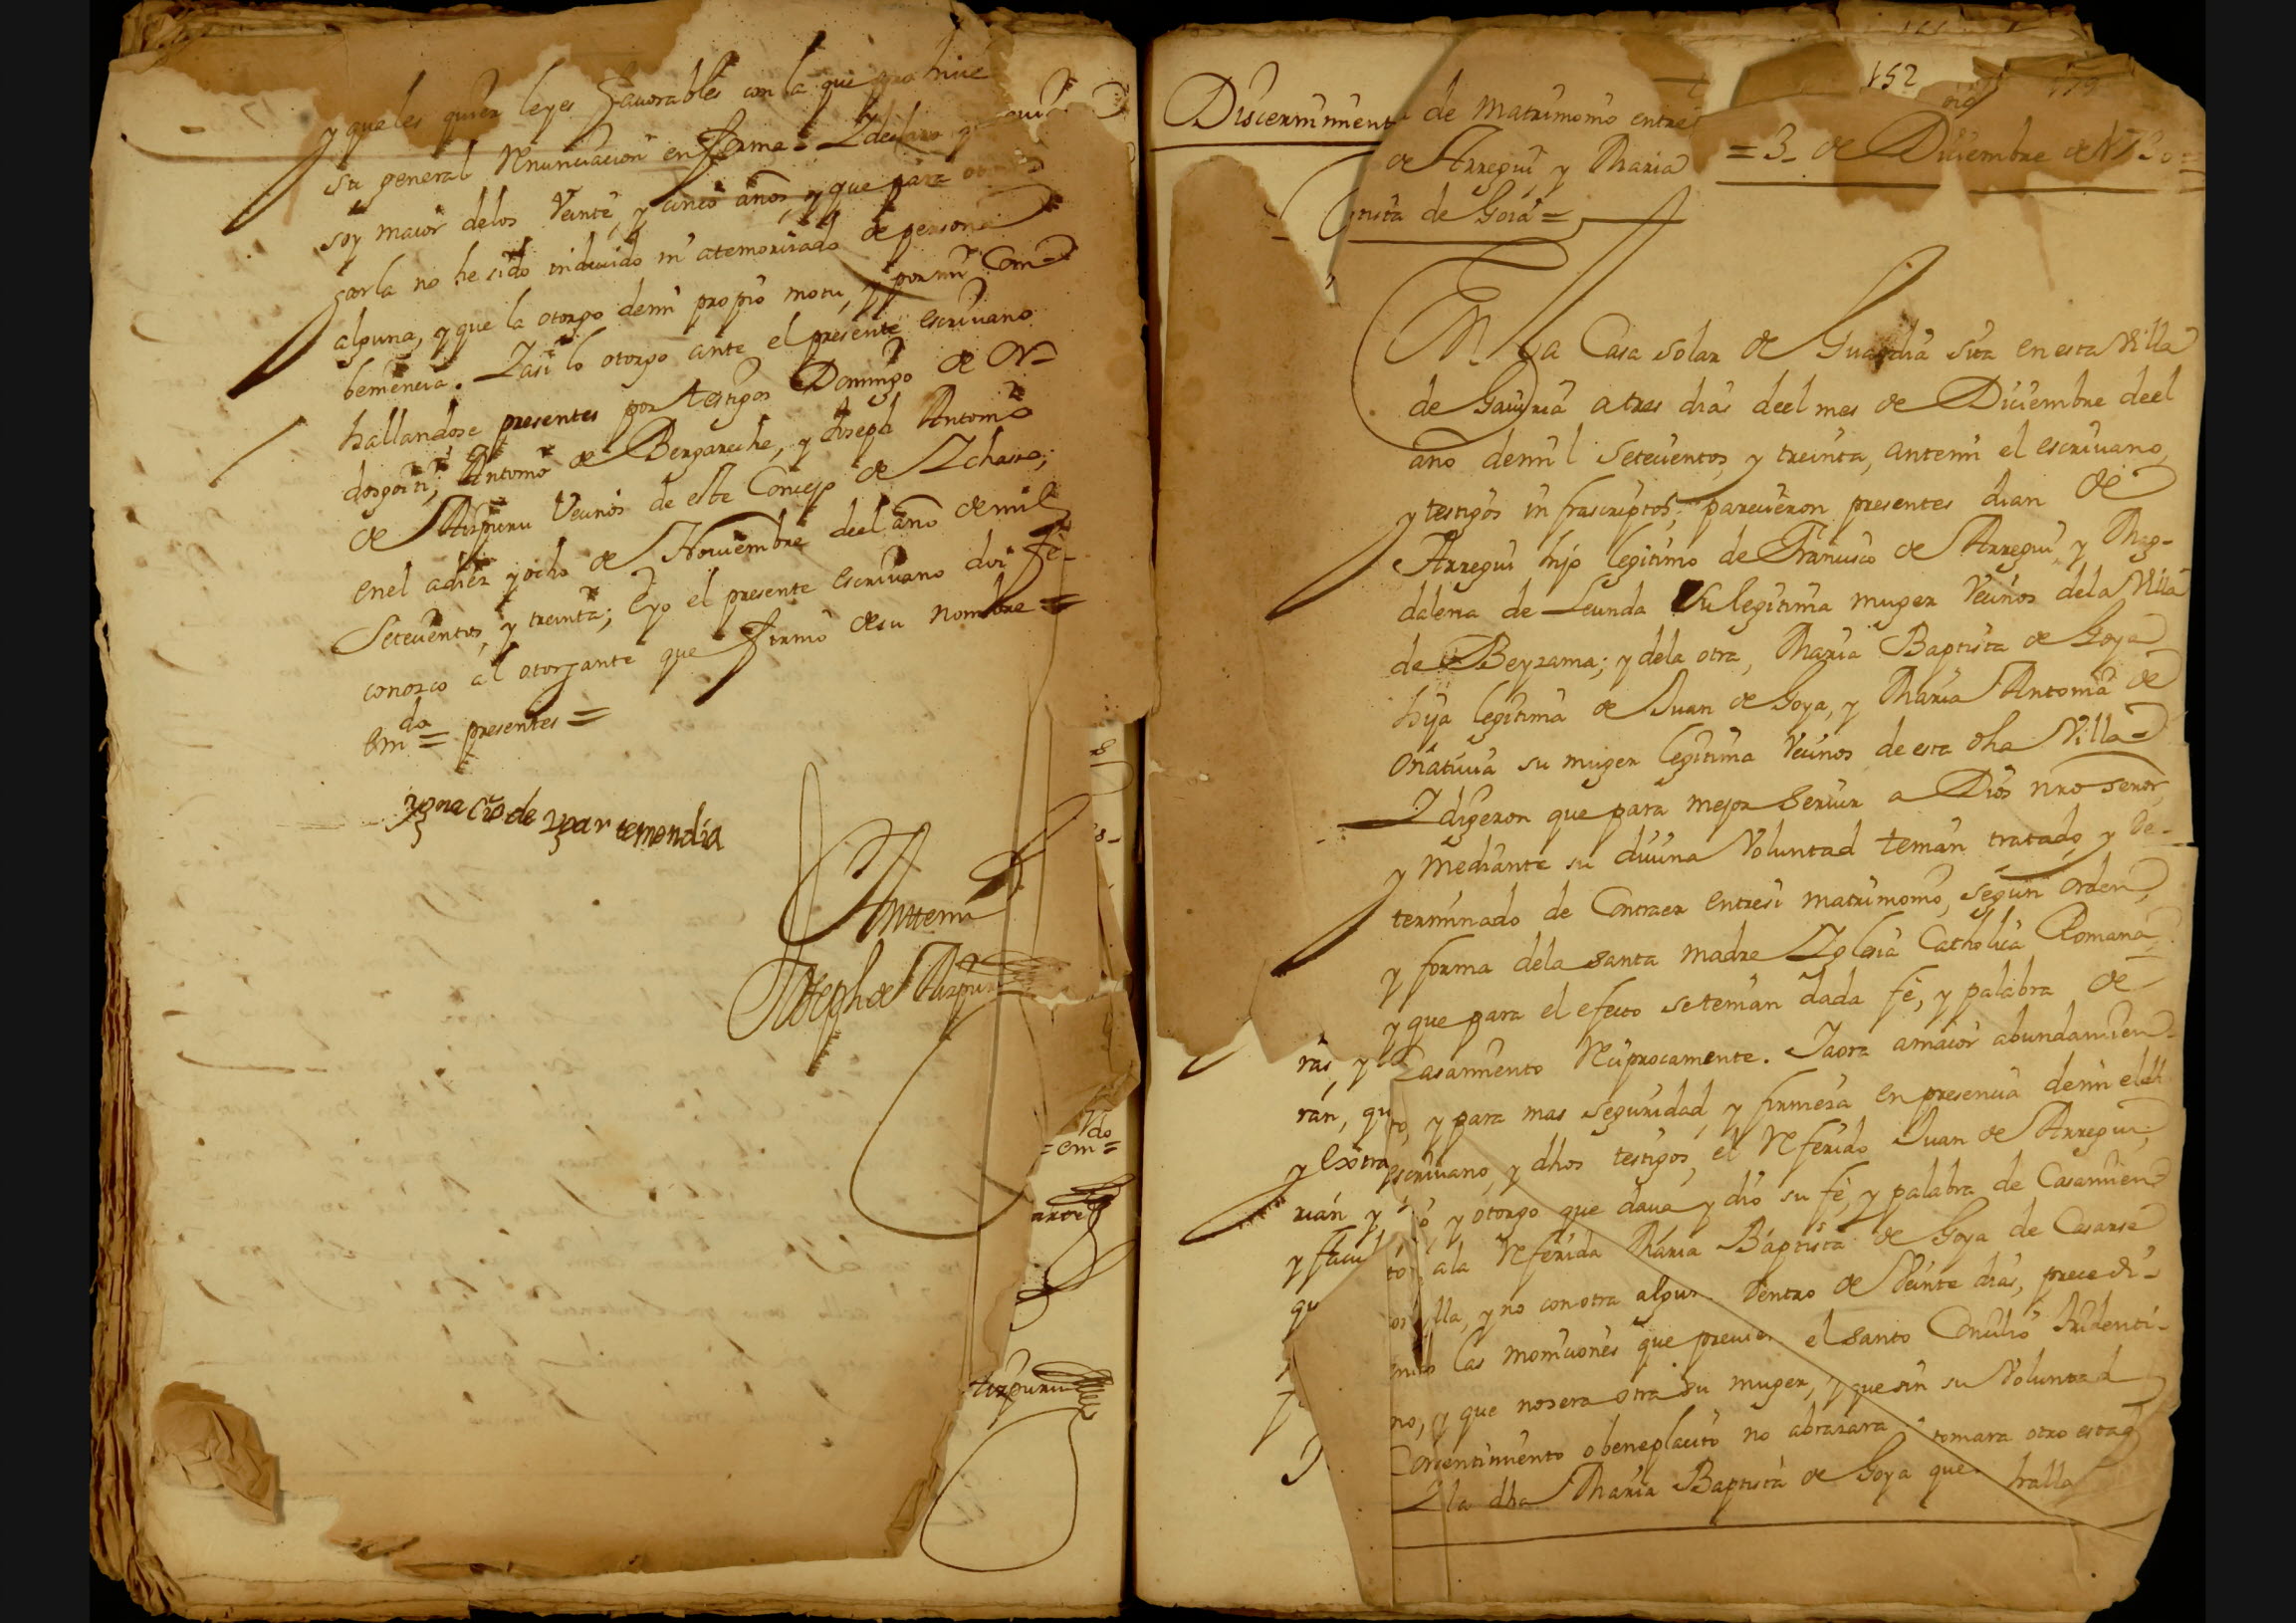 y queles quier leyes favorables con la que prohive
su general Renunciacion en forma. Y declaro que
soy maior delos Veinte, y cinco años, y que para
zarla no he sido inducido ni atemorizado de persona
alguna, y que la otorgo demi propio motu, y por mi Com-
bemencia. Y asi lo otorgo ante el presente escrivano
hallandose presentes por testigos Domingo de Or-
dosgoiti, Antonio de Bergareche, y Joseph Antonio
de Aizpuru Vecinos de este Concejo de Ichaso;
enel adiez y ocho de Noviembre deel año de mil
Setecientos, y treinta; Eyo el presente Escrivano doi fe-
conozco al otorgante que firmo de su nombre =
em^do = presentes =
Anttemi
Joseph de Aizpuru
=em^do=
Aizpuru
152
Discernimiento de Matrimonio entre
de Arregui y Maria
de Goia =
= 3 - de Diciembre de 1730 =
EN la Casa solar de Guardia sita en esta Villa
de Gaviria a tres dias deel mes de Diciembre deel
año demil Setecientos, y treinta, antemi el escrivano,
y testigos infrascriptos, parecieron presentes Juan de
Arregui hijo legitimo de Francisco de Arregui, y Mag-
dalena de Leunda su legitima muger Vecinos dela Villa
de Beyzama; y dela otra, Maria Baptista de Goya
hija legitima de Juan de Goya, y Maria Antonia de
Oñativia su muger legitima Vecinos de esta dha Villa
Y digeron que para mejor Servir a Dios nro señor,
y mediante su divina Voluntad tenian tratado, y De-
terminado de Contraer entresi matrimonio, segun orden,
y forma dela santa madre Yglesia Catholica Romana,
y que para el efecto setenian dada fe, y palabra de
ras, y
Casamiento Reciprocamente. Y aora amaior abundamien-
ran, qu
to, y para mas seguridad, y firmeza en presencia demi el
y Extra
escrivano, y dhos testigos, el Referido Juan de Arregui,
rian y
y otorgo que dava, y dio su fe, y palabra de Casamien-
y facul
to, ala Referida Maria Baptista de Goya de Casarse
qu
lla, y no con otra alguna Dentro de Veinte dias, precedi-
las moniciones que previe el santo Concilio Tridenti-
no, y que nosera otra su muger, y que sin su Voluntad
Consentimiento o beneplacito no abrazara tomara otro estad
Y la dha Maria Baptista de Goya que halla